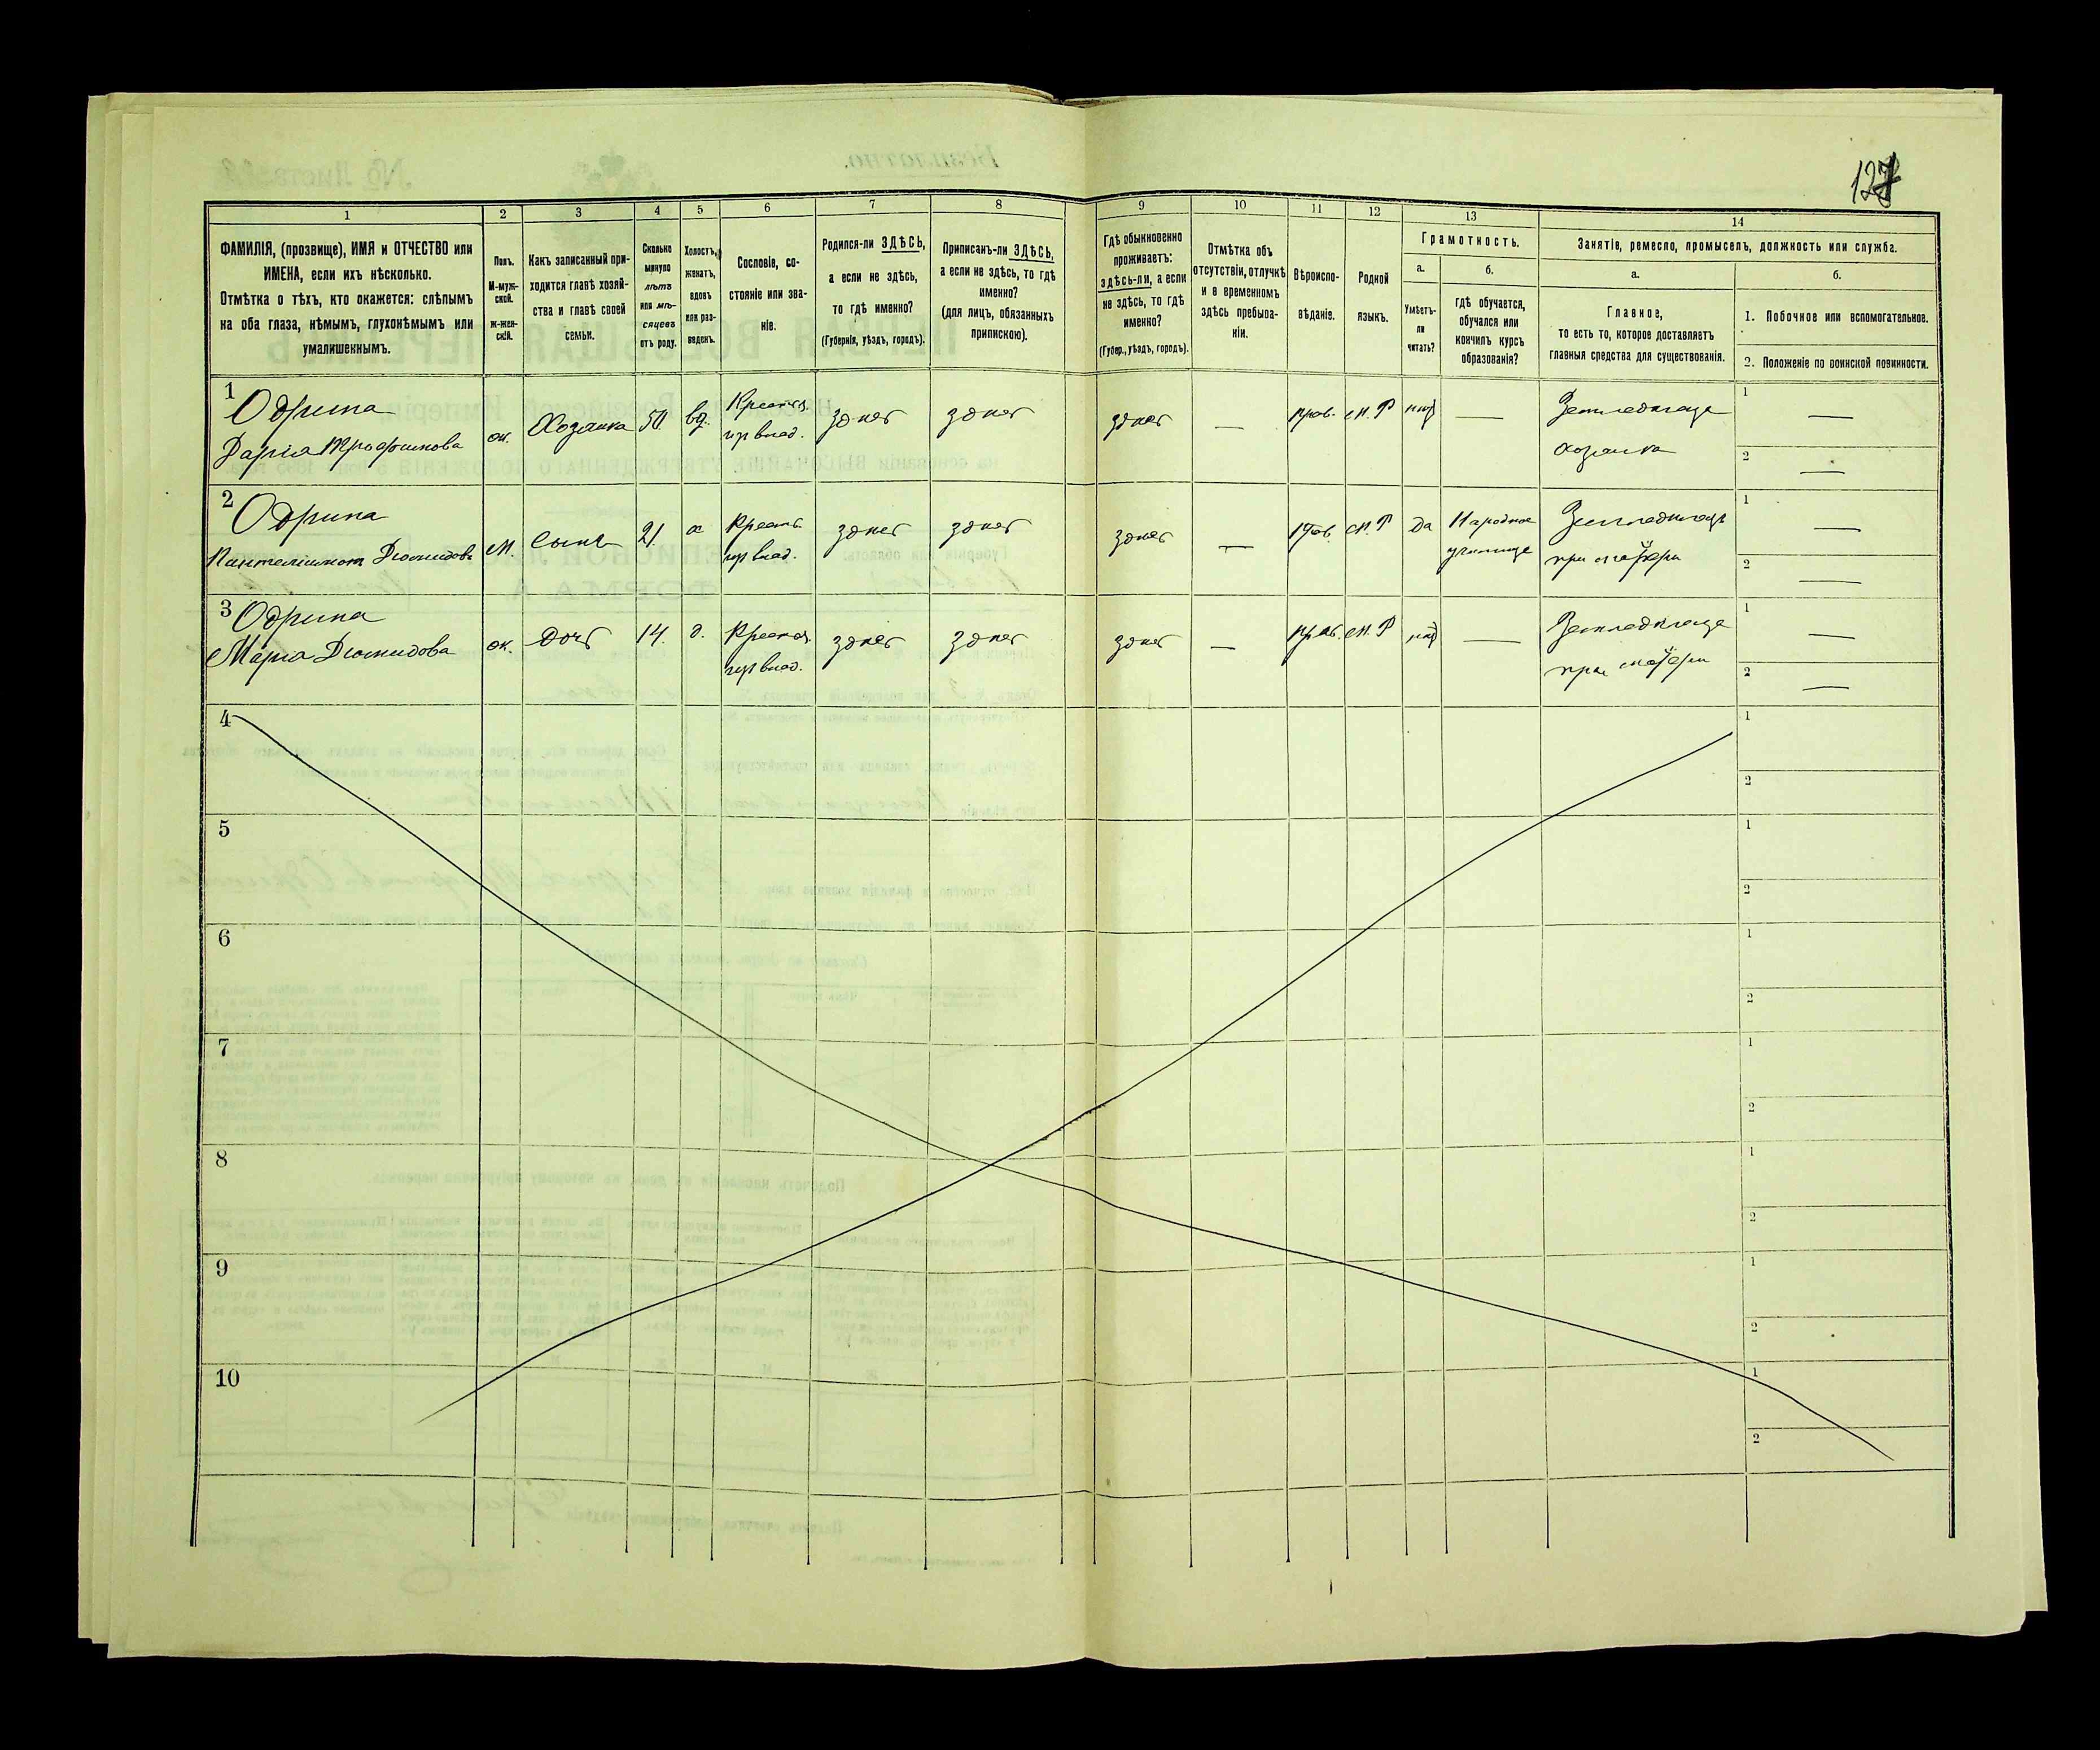 127
1
2
3
4
5
6
7
8
9
10
11
12
13
14
ФАМИЛІЯ, (прозвище), ИМЯ и ОТЧЕСТВО или
ИМЕНА, если ихъ нѣсколько.
Отмѣтка о тѣхъ, кто окажется: слѣпымъ
на оба глаза, нѣмымъ, глухонѣмымъ или
умалишеннымъ.
Полъ.
М-муж-
ской.
Ж-жен-
скій.
Какъ записанный при-
ходится главѣ хозяй-
ства и главѣ своей
семьи.
Сколько
минуло
лѣтъ
или мѣ-
сяцевъ
отъ роду.
Холостъ,
женатъ,
вдовъ
или раз-
веденъ.
Сословіе, со-
стояніе или зва-
ніе.
Родился-ли ЗДѢСЬ,
а если не здѣсь,
то гдѣ именно?
(Губернія, уѣздъ, городъ).
Приписанъ-ли ЗДѢСЬ,
а если не здѣсь, то гдѣ
именно?
(для лицъ, обязанныхъ
припискою).
Гдѣ обыкновенно
проживаетъ:
здѣсь-ли, а если
не здѣсь, то гдѣ
именно?
(Губер., уѣздъ, городъ).
Отмѣтка объ
отсутствіи, отлучкѣ
и о временномъ
здѣсь пребыва-
ніи.
Вѣроиспо-
вѣданіе.
Родной
языкъ.
Грамотность.
а.
Умѣетъ-
ли
читать?
б.
гдѣ обучается,
обучался или
кончилъ курсъ
образованія?
Занятіе, ремесло, промыселъ, должность или служба.
а.
Главное,
то есть то, которое доставляетъ
главныя средства для существованія.
б.
1. Побочное или вспомогательное.
2. Положеніе по воинской повинности.
1
Одрина
Дарія Трофимова
ж.
Хозяйка
50
вд.
Крестья.
влад.
здѣсь
здѣсь
здѣсь
—
прав.
м. Р
нѣтъ
—
Земледѣлица
хозяйка
1 —
2 —
2
Одрина
Пантелеймонъ Діомидовъ
м.
Сынъ
21.
х
Крестья.
влад.
здѣсь
здѣсь
здѣсь
—
Прав.
м. Р
да
Народное
училище
Земледѣлецъ
при матери
1 —
2 —
3
Одрина
Марія Діомидова
ж.
Дочь
14.
д.
Крестья.
влад.
здѣсь
здѣсь
здѣсь
—
прав.
м. Р
нѣтъ
—
Земледѣлица
при матери
1 —
2 —
4
1
2
5
1
2
6
1
2
7
1
2
8
1
2
9
1
2
10
1
2